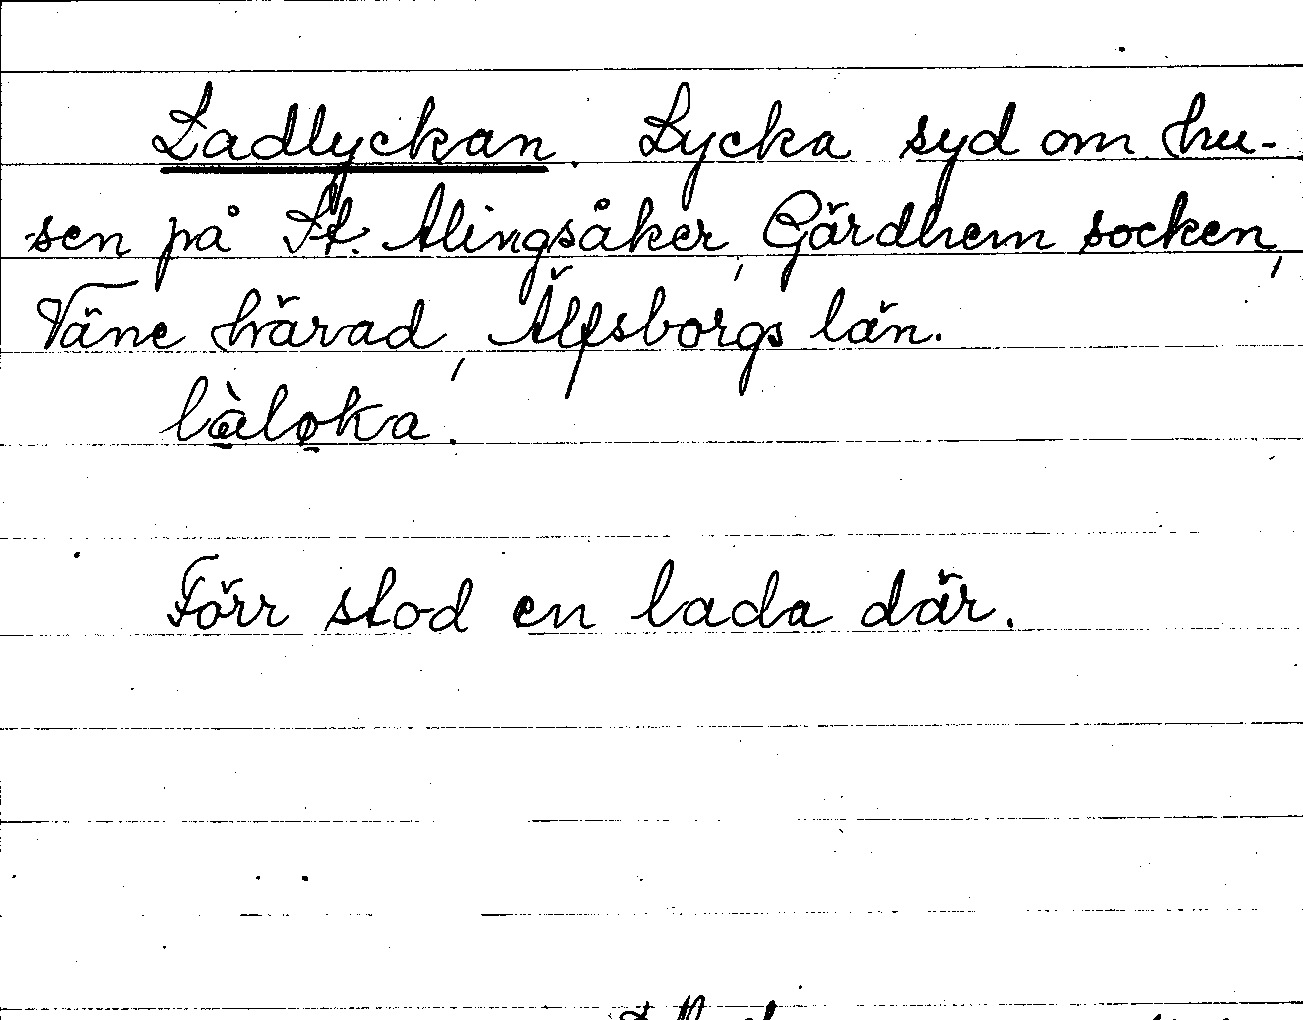 Ladlyckan. Lycka syd om hu-
sen på St. Alingsåker, Gärdhem socken,
Väne härad, Älfsborgs län.
làloka.
Förr stod en lada där.